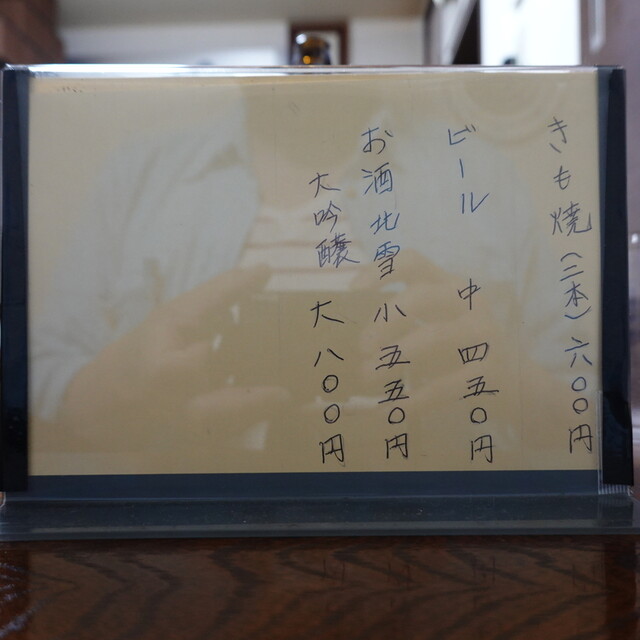 きも焼(二本)六〇〇円
ビール 中 四五〇円
お酒北雪 小 五五〇円
大吟醸 大 八〇〇円